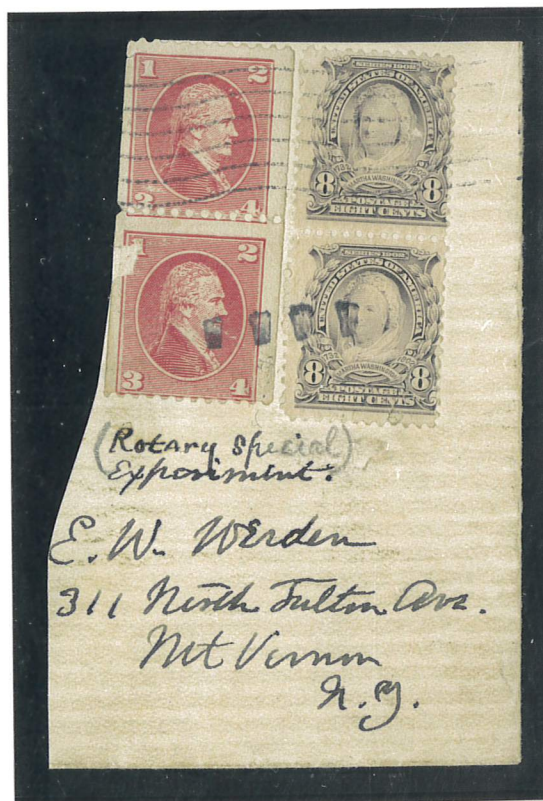 1 2
3 4
1 2
3 4
SERIES 1902
UNITED STATES OF AMERICA
MARTHA WASHINGTON
8 POSTAGE 8
EIGHT CENTS
SERIES 1902
UNITED STATES OF AMERICA
1732
MARTHA WASHINGTON
8 POSTAGE 8
EIGHT CENTS
(Rotary Special)
Experiment.
E. W. Werden
311 North Fulton Ave.
Mt Vernon
N.Y.